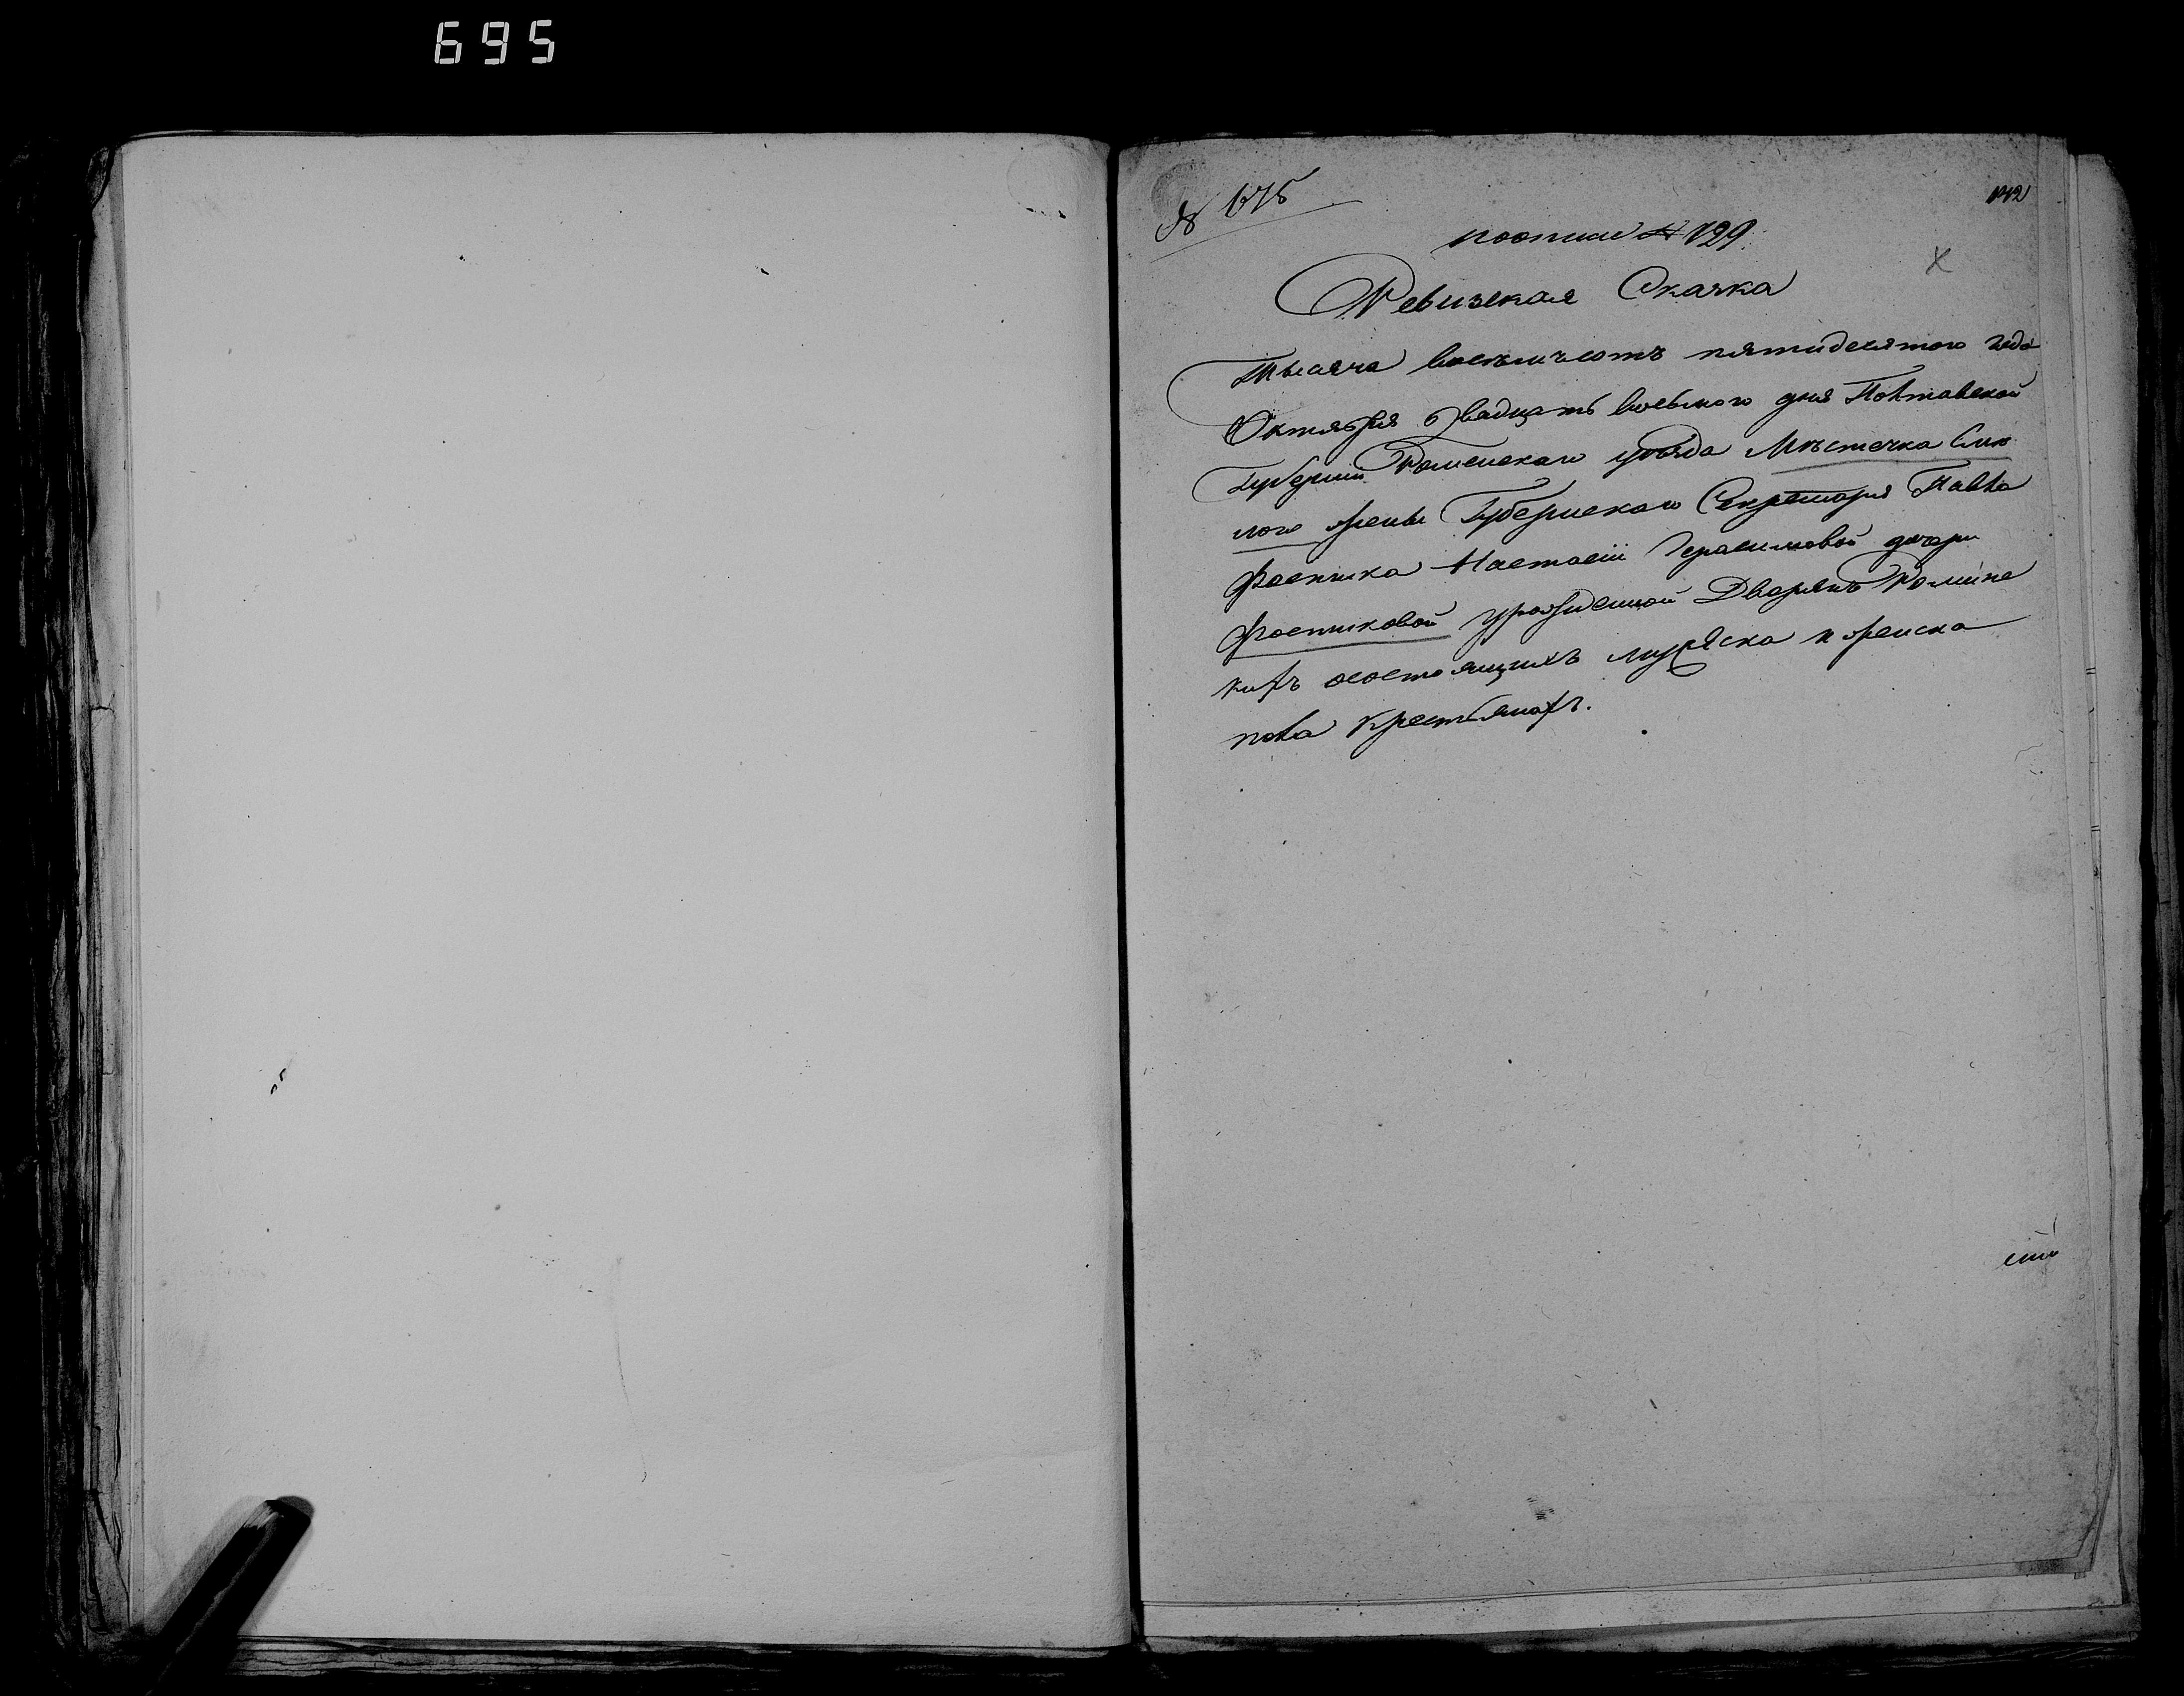 695
№ 675
142
по описи № 129
Ревизская Сказка
Тысяча восемъсотъ пятидесятого года
Октября двадцать восьмого дня Полтавской
Губернии Роменскаго уѣзда Мѣстечка Сми
лого жены Губернскаго Секретаря Павла
Фостика Настасіи Герасимовой дочери
Фостиковой урожденной Дворянъ
кихъ состоящихъ мужеска и женска
пола крестьянахъ.